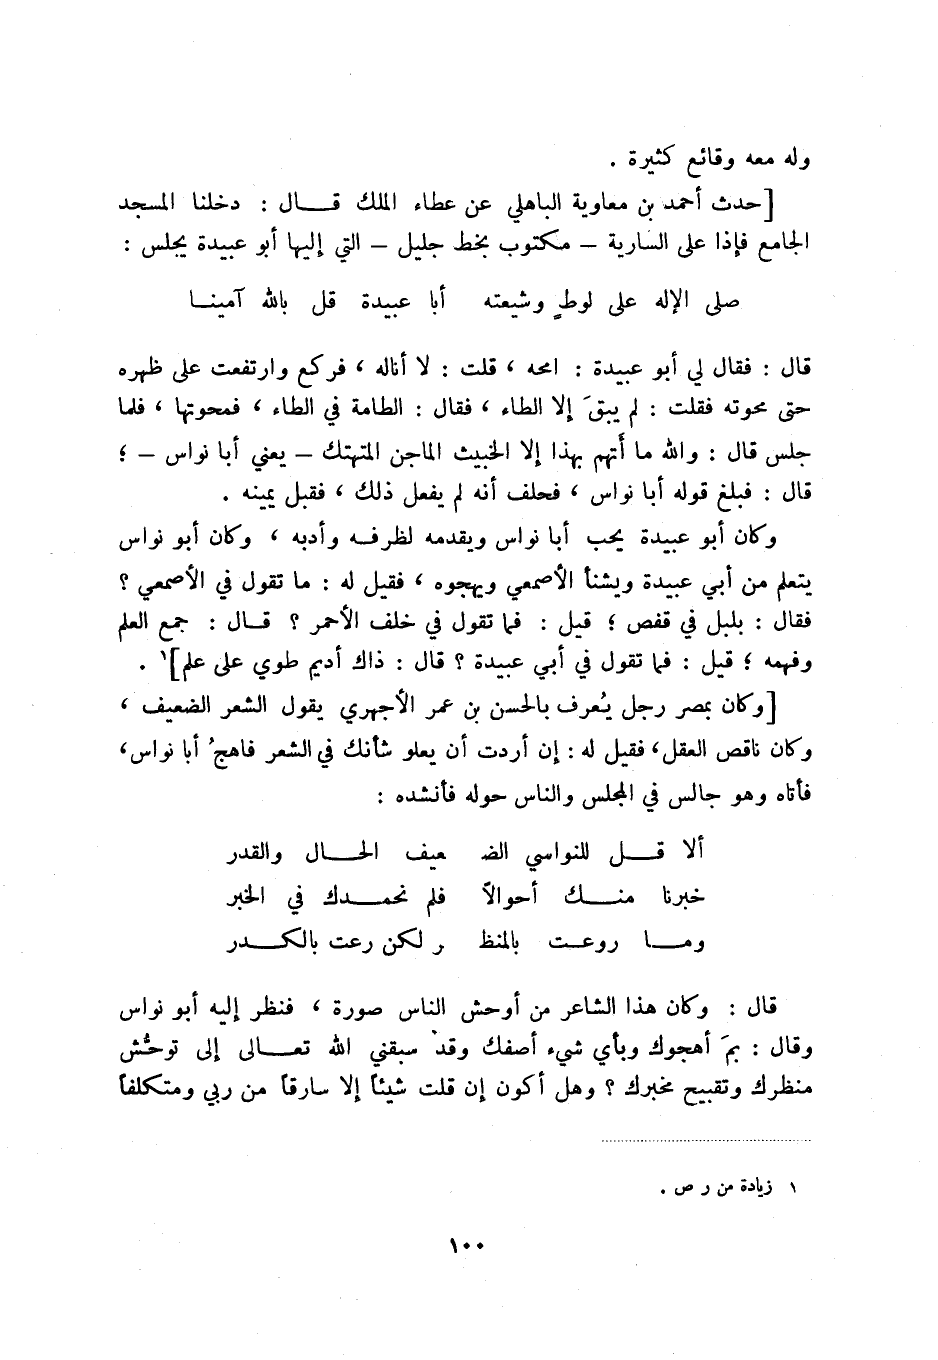 وله معه وقائع كثيرة .
[حدث أحمد بن معاوية الباهلي عن عطاء الملك قال : دخلنا المسجد
الجامع فإذا على السارية – مكتوب بخط جليل – التي إليها أبو عبيدة يجلس :
صلى الإله على لوطٍ وشيعته أبا عبيدة قل بالله آمينا
قال : فقال لي أبو عبيدة : امحه ، قلت : لا أناله ، فركع وارتفعت على ظهره
حتى محوته فقلت : لم يبقَ إلا الطاء ، فقال : الطامة في الطاء ، فمحوتها ، فلما
جلس قال : والله ما أَتهم بهذا إلا الخبيث الماجن المتهتك – يعني أبا نواس – ؛
قال : فبلغ قوله أبا نواس ، فحلف أنه لم يفعل ذلك ، فقبل يمينه .
وكان أبو عبيدة يحب أبا نواس ويقدمه لظرفه وأدبه ، وكان أبو نواس
يتعلم من أبي عبيدة ويشنأ الأصمعي ويهجوه ، فقيل له : ما تقول في الأصمعي ؟
فقال : بلبل في قفص ؛ قيل : فما تقول في خلف الأحمر ؟ قال : جمع العلم
وفهمه ؛ قيل : فما تقول في أبي عبيدة ؟ قال : ذاك أديم طوي على علم]١ .
[وكان بمصر رجل يُعرف بالحسن بن عمر الأجهري يقول الشعر الضعيف ،
وكان ناقص العقل، فقيل له : إن أردت أن يعلو شأنك في الشعر فاهجُ أبا نواس،
فأتاه وهو جالس في المجلس والناس حوله فأنشده :
ألا قل للنواسي الضـ ـعيف الحال والقدر
خبرنا منك أحوالاً فلم نحمدك في الخبر
وما روعت بالمنظـ ـر لكن رعت بالكدر
قال : وكان هذا الشاعر من أوحش الناس صورة ، فنظر إليه أبو نواس
وقال : بمَ أهجوك وبأي شيء أصفك وقدْ سبقني الله تعالى إلى توحُّش
منظرك وتقبيح مخبرك ؟ وهل أكون إن قلت شيئاً إلا سارقاً من ربي ومتكلفاً
١ زيادة من ر ص .
١٠٠